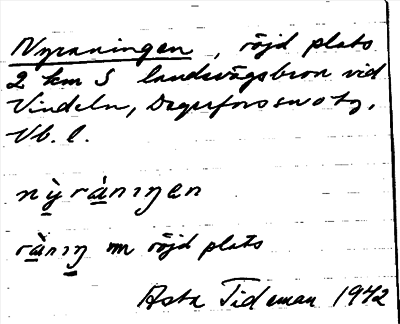 Nyraningen, röjd plats
2 km S landsvägsbron vid
Vindeln, Degerfors sn o tg,
Vb. l.
nỳ̲rà̲nıŋen
rà̲nıŋ̲ m röjd plats
Asta Tideman 1942